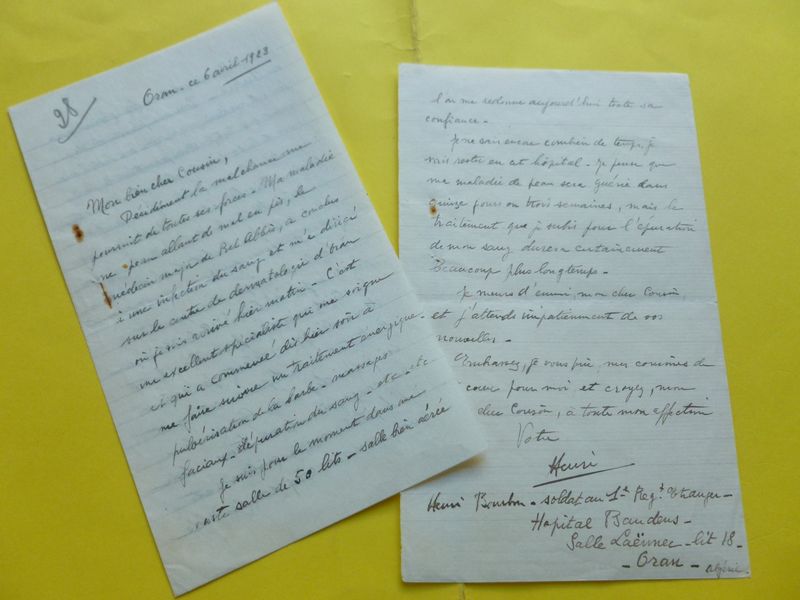 28
Oran - ce 6 avril - 1923
Mon bien cher Cousin,
Décidément la malchance me
poursuit de toutes ses forces - Ma maladie
de peau allant de mal en pis, le
médecin major de Bel Abbès, a conclus
à une infection du sang et m'a dirigé
sur le centre de dermatologie d'Oran
où je suis arrivé hier matin - C'est
un excellent spécialiste qui me soigne
et qui a commencé dès hier soir à
me faire suivre un traitement énergique -
pulvérisation de la barbe - massages
faciaux - dépuration du sang - etc - etc
Je suis pour le moment dans une
vaste salle de 50 lits - salle bien aérée
l'on me redonne aujourd'hui toute sa
confiance -
Je ne sais encore combien de temps je
vais rester en cet hôpital - Je pense que
ma maladie de peau sera guérie dans
quinze jours ou trois semaines, mais le
traitement que je subis pour l'épuration
de mon sang durera certainement
beaucoup plus longtemps -
Je meurs d'ennui, mon cher Cousin,
et j'attends impatiemment de vos
nouvelles -
Embrassez, je vous prie, mes cousines de
cœur pour moi et croyez, mon
cher Cousin, à toute mon affection
Votre
Henri
Henri Bourbon - soldat au 1er Regt Etranger -
Hopital Baudens -
Salle Laënnec - lit 18 -
- Oran - Algérie